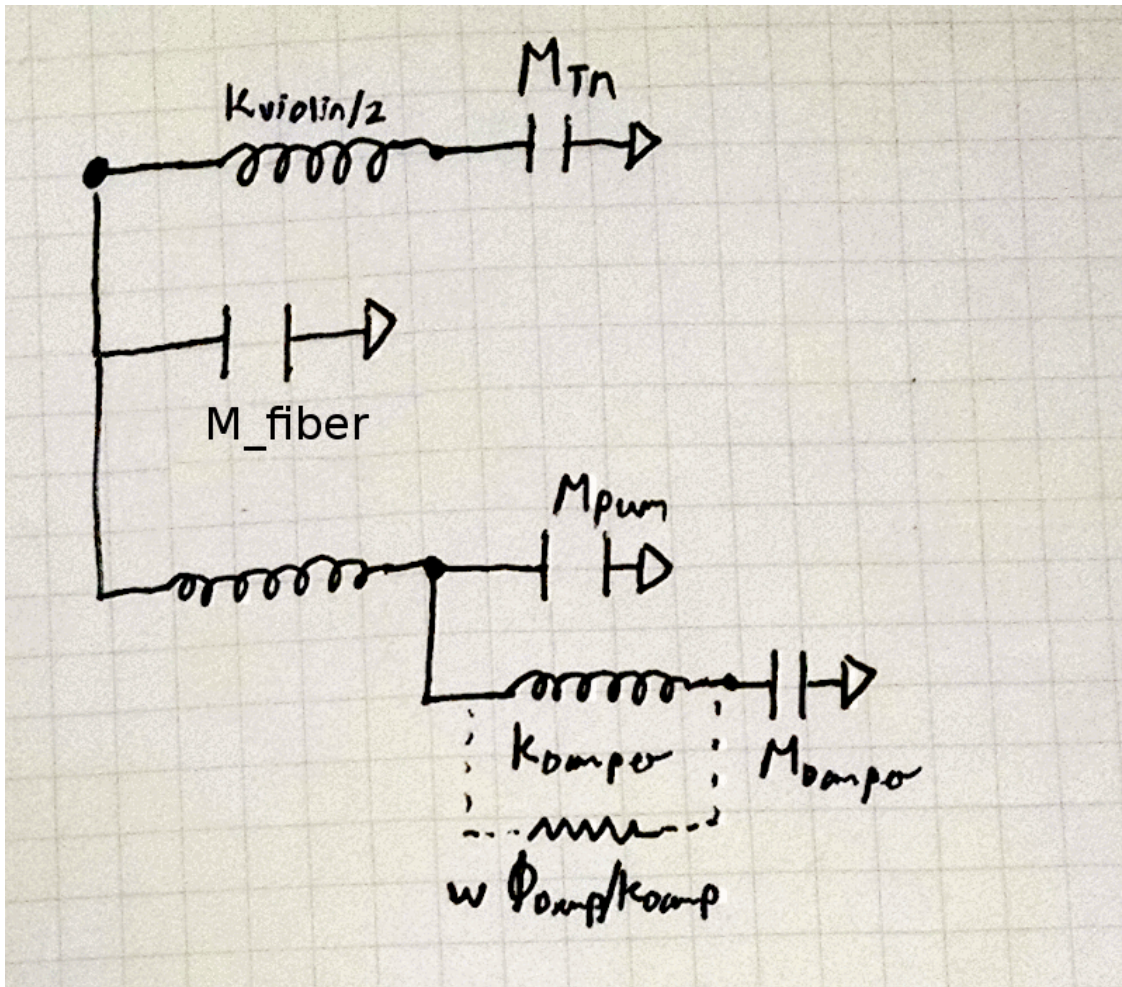 M_Tn
Kviolin/2
M_fiber
Mpum
KDamper
MDamper
w ΦDamp/KDamp